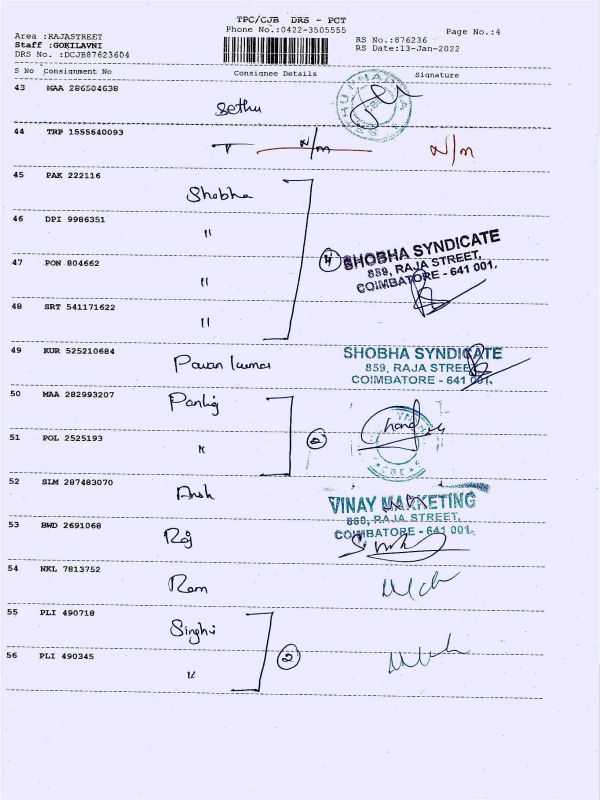 TPC/CJB DRS - PCT
Phone No.:0422-3505555
Page No.:4
Area :RAJASTREET
Staff :GOKILAVNI
DRS No. :DCJB87623604
RS No.:876236
RS Date:13-Jan-2022
S No Consignment No Consignee Details Signature
43 MAA 286504638 Sethu
44 TRP 1555640093 N/m N/m
45 PAK 222116 Shobha
46 DPI 9986351 "
47 PON 804662 "
48 SRT 541171622 "
4
SHOBHA SYNDICATE
859, RAJA STREET,
COIMBATORE - 641 001.
49 KUR 525210684 Pavan kumar
SHOBHA SYNDICATE
859, RAJA STREET,
COIMBATORE - 641 001.
50 MAA 282993207
51 POL 2525193 "
2
52 SLM 287483070 Ansh
VINAY MARKETING
860, RAJA STREET,
COIMBATORE - 641 001.
53 BWD 2691068 Raj
54 NKL 7813752 Ram
55 PLI 490718 Singhvi
56 PLI 490345 "
2